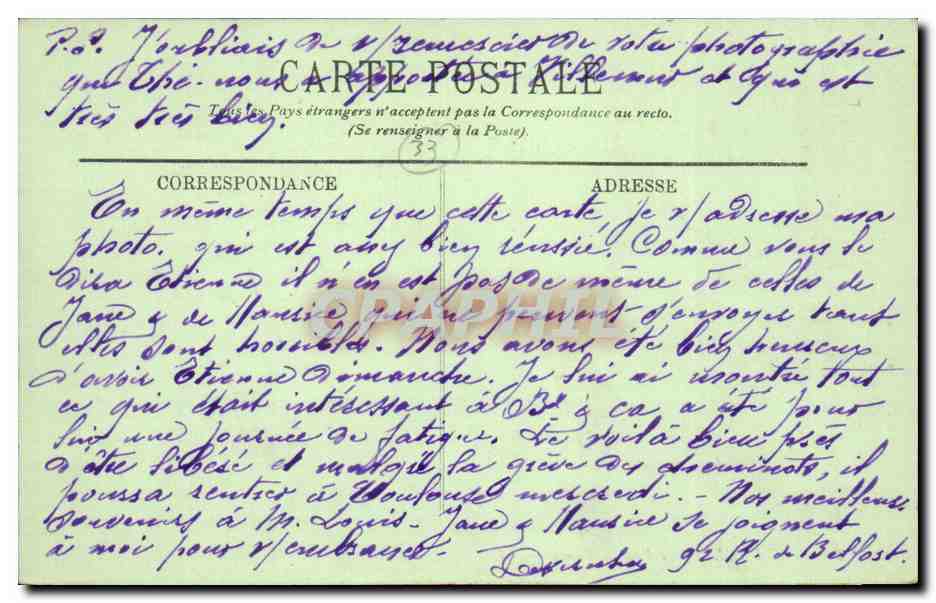 P.S. J'oubliais de v/remercier de votre photographie
que Thé- nous a apportée à et qui est
très très bien.
CARTE POSTALE
Tous les Pays étrangers n'acceptent pas la Correspondance au recto.
(Se renseigner à la Poste).
33
CORRESPONDANCE
ADRESSE
En même temps que cette carte, je v/adresse ma
photo. qui est assez bien réussie. Comme vous le
dira Etienne il n'en est pas de même de celles de
Jane & de Maurice qui ne peuvent s'envoyer tant
elles sont horribles. Nous avons été bien heureux
d'avoir Etienne Dimanche. Je lui ai montré tout
ce qui était intéressant à Bx & ça a été pour
lui une journée de fatigue. Le voilà bien près
d'être libéré et malgré la grève des cheminots, il
pourra rentrer à Toulouse mercredi. - Nos meilleurs
souvenirs à M. Louis - Jane & Maurice se joignent
à moi pour v/embrasser.
92 R. de Belfort.
CPAPHIL